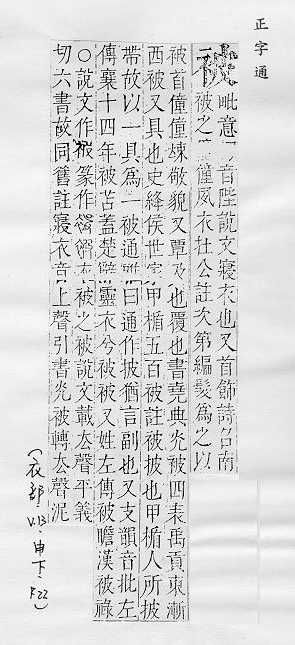 正字通
被
毗意切音陛說文寢衣也又首飾詩召南
被之僮僮風衣杜公註次第編髮為之以
被首僮僮竦敬貌又覃及也覆也書堯典光被四表禹貢東漸
西被又具也史絳侯世家甲楯五百被註被披也甲楯人所披
帶故以一具為一被通雅曰通作披猶言副也又支韻音批左
傳襄十四年被苫蓋楚辭靈衣兮被被又姓左傳被瞻漢被祿
〇說文作被篆作衣被之被說文載去聲平義
切六書故同舊註寢衣音上聲引書光被轉去聲泥
(衣部、V.13、申下、P.22)